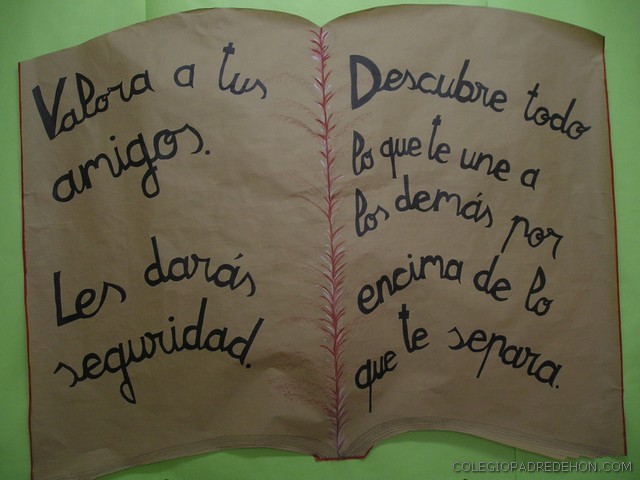 Valora a tus
amigos.
Les darás
seguridad.
Descubre todo
lo que te une a
los demás por
encima de lo
que te separa.
COLEGIOPADREDEHON.COM